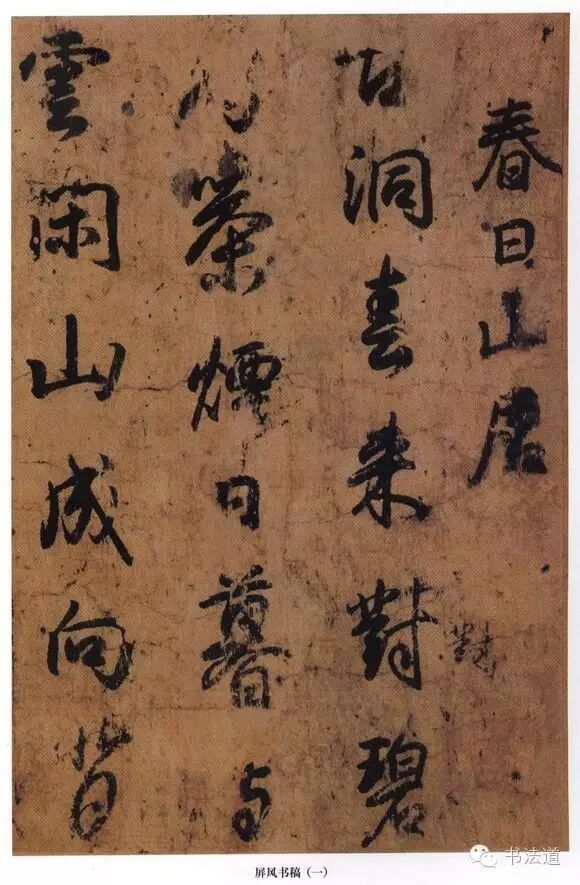 春日山居
古洞春来對碧
對
茶煙日暮与
雲閑山成向背
屏风书稿（一）
书法道